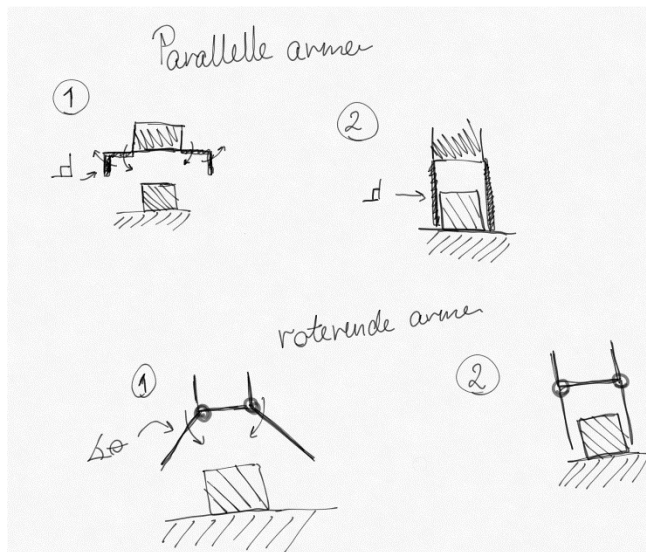 Parallelle armer
1
2
roterende armer
1
2
∡θ